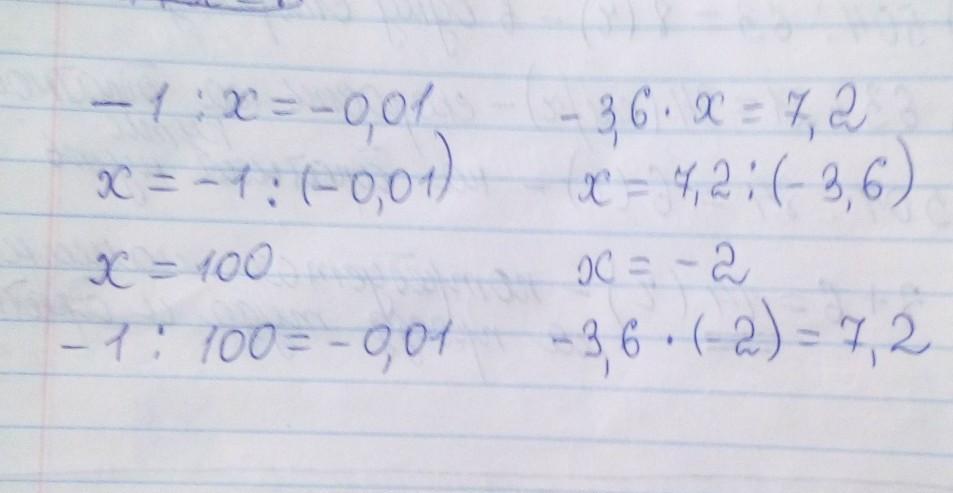 -1 : x = -0,01
x = -1 : (-0,01)
x = 100
-1 : 100 = -0,01
-3,6 · x = 7,2
x = 7,2 : (-3,6)
x = -2
-3,6 · (-2) = 7,2